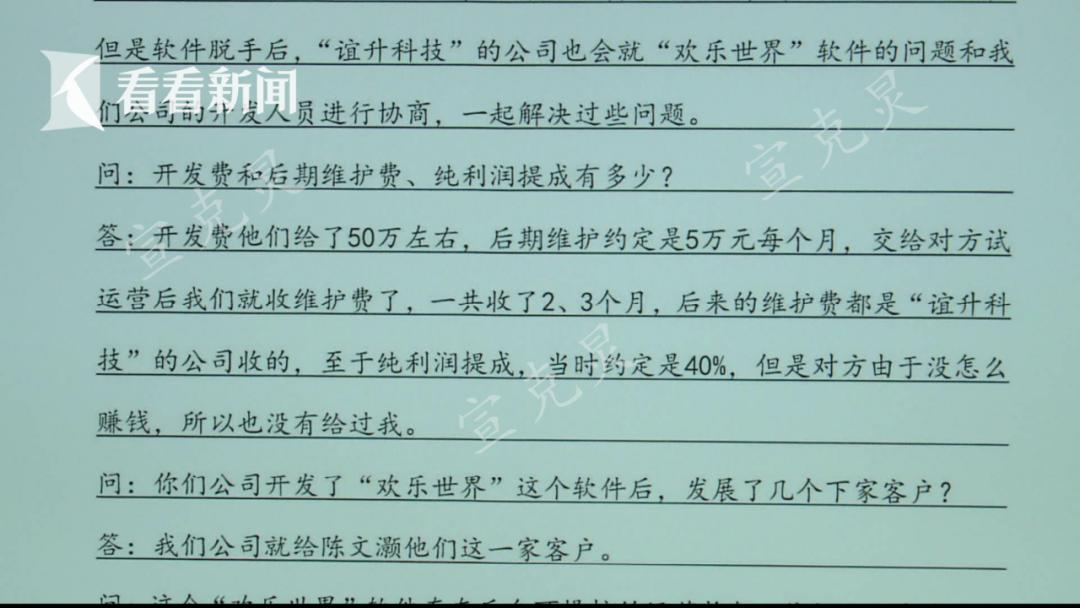 但是软件脱手后，“谊升科技”的公司也会就“欢乐世界”软件的问题和我
看看新闻
们公司的开发人员进行协商，一起解决过些问题。
宣克灵
问：开发费和后期维护费、纯利润提成有多少？
宣克灵
答：开发费他们给了50万左右，后期维护约定是5万元每个月，交给对方试
运营后我们就收维护费了，一共收了2、3个月，后来的维护费都是“谊升科
技”的公司收的，至于纯利润提成，当时约定是40%，但是对方由于没怎么
宣克灵
赚钱，所以也没有给过我。
问：你们公司开发了“欢乐世界”这个软件后，发展了几个下家客户？
答：我们公司就给陈文灏他们这一家客户。
问：这个“欢乐世界”软件